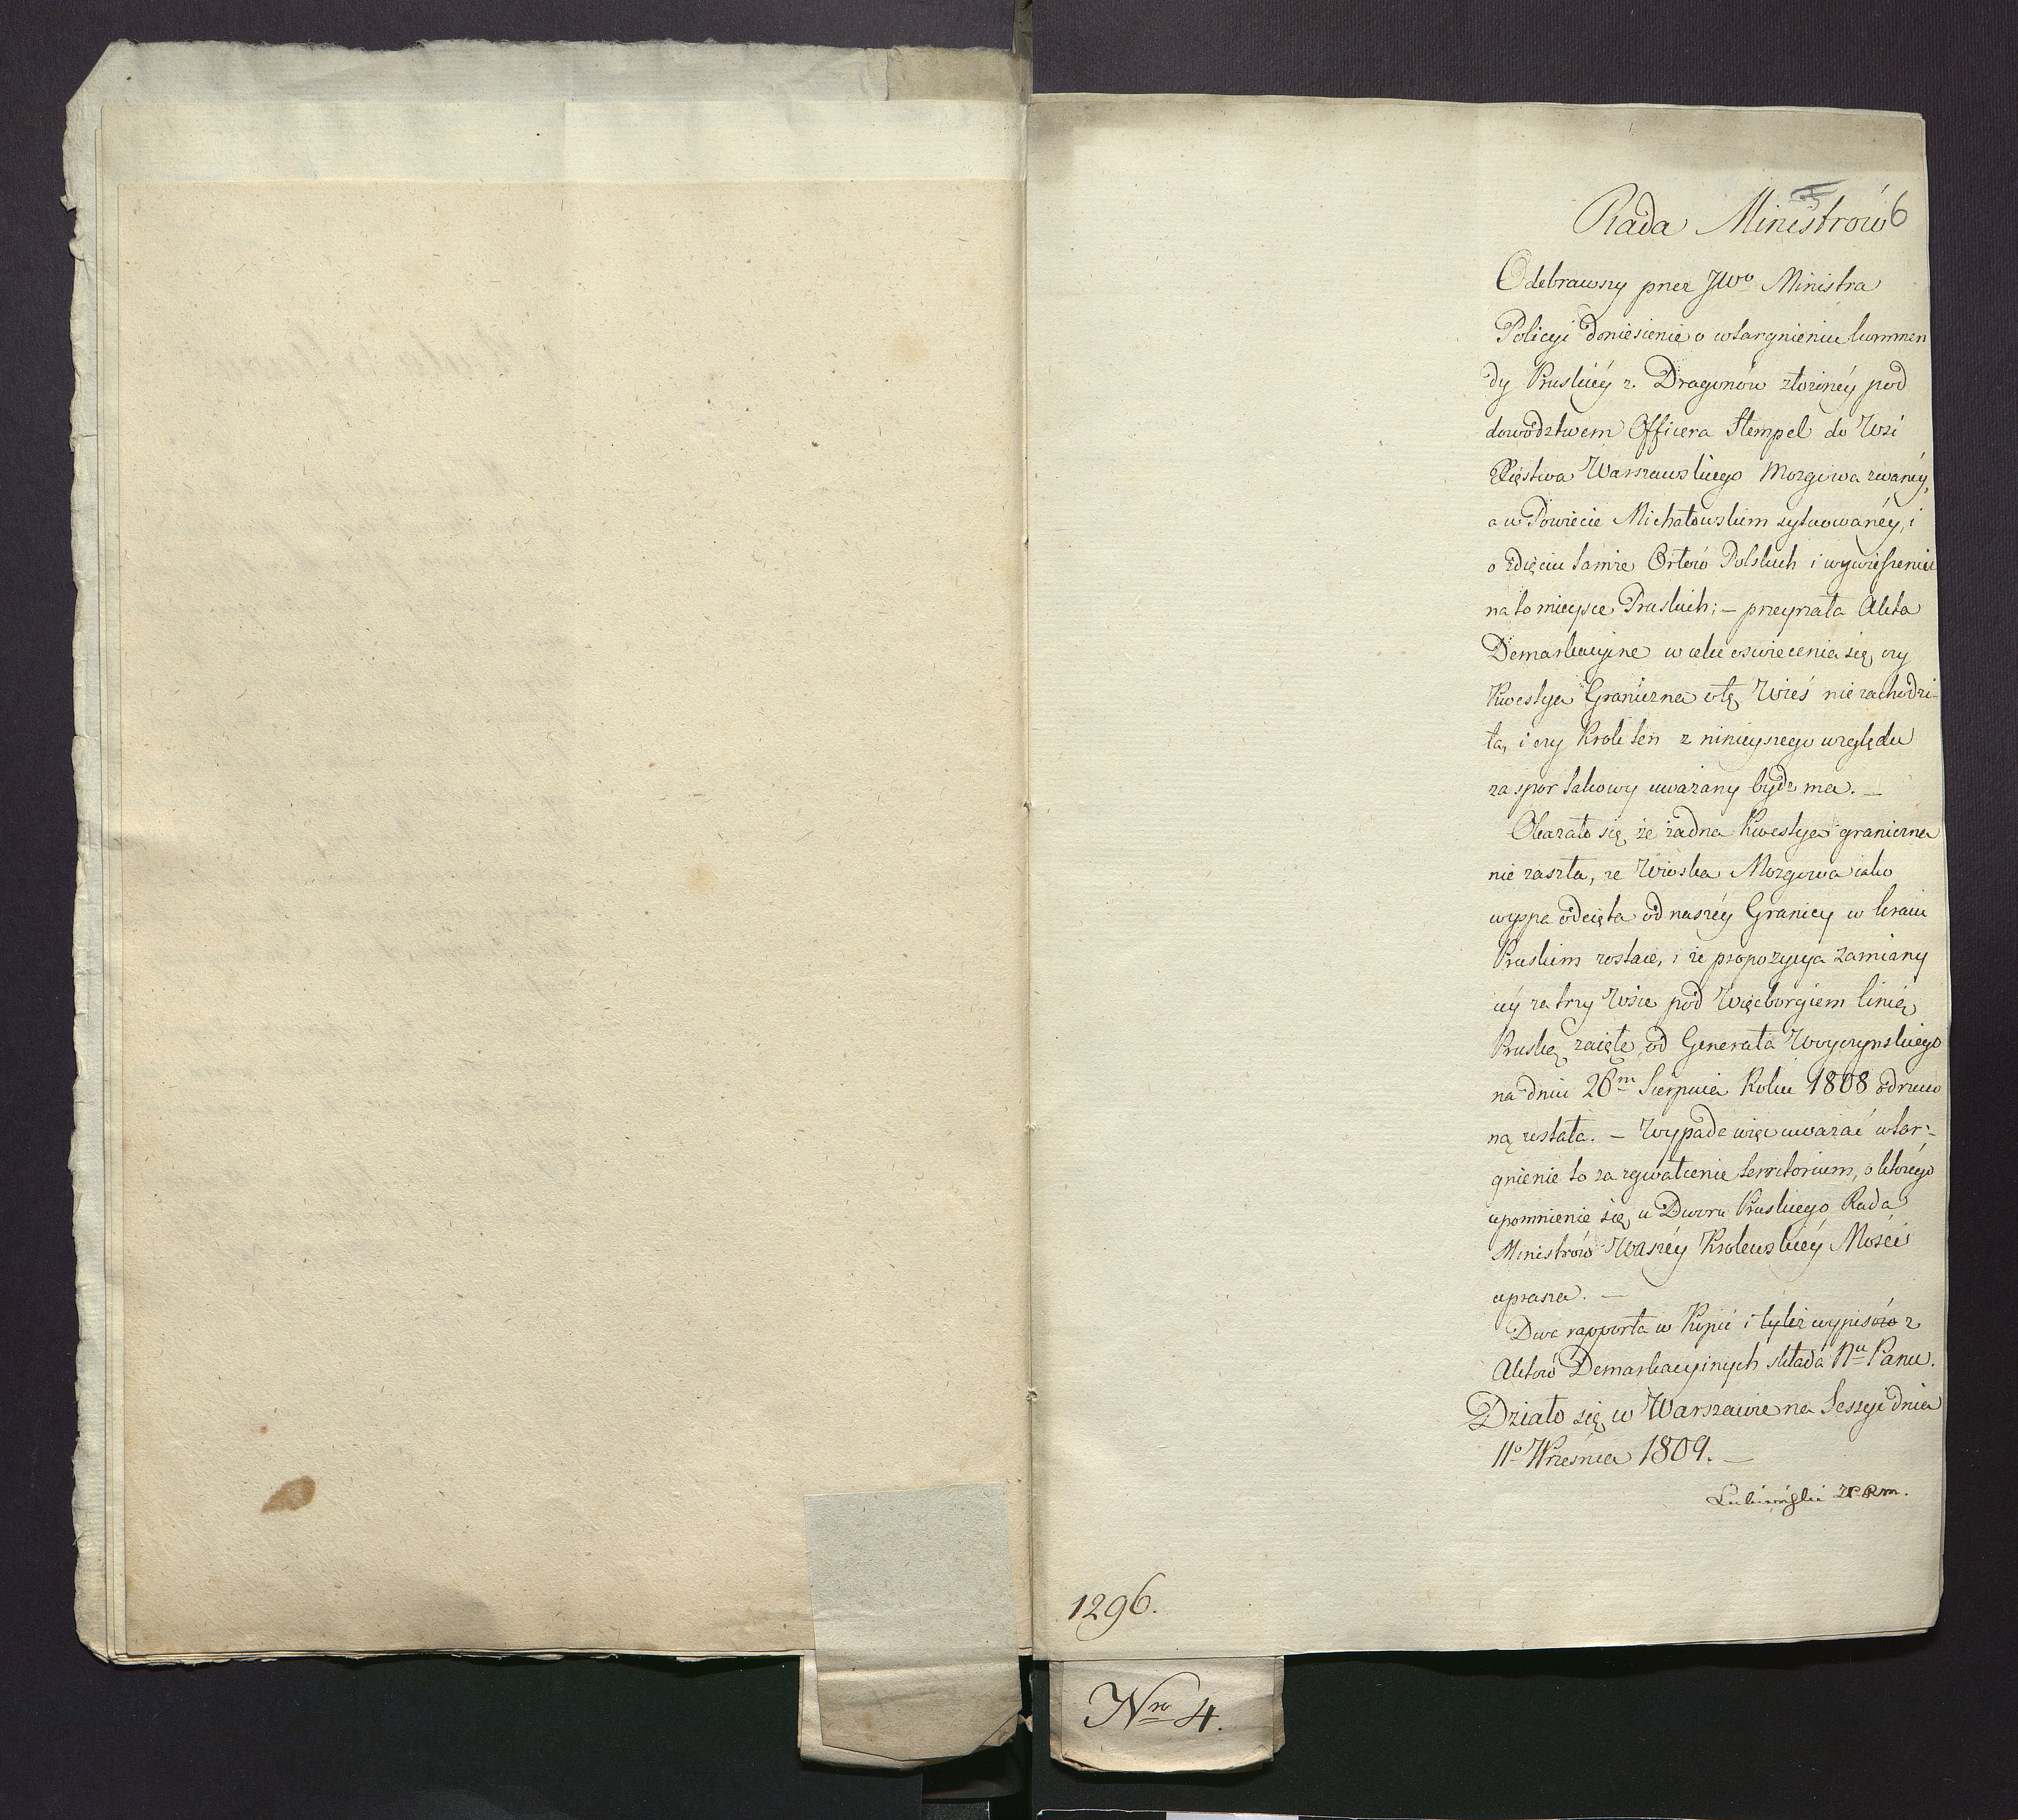 6
Rada Ministrów
Odebrawszy przez JWo Ministra
Policyi doniesienie o wtargnieniu kommen
dy Pruskiéy z Dragonów złożonéy pod
dowództwem Officera Stempel do Wsi
Xięstwa Warszawskiego Mozgowa zwanéy,
a w Powiecie Michałowskim sytuowanéy, i
o zdięciu tamże Orłów Polskich i wywieszeniu
na to mieysce Pruskich; – przeyrzała Akta
Demarkacyine w celu oswiecenia się, czy
Kwestya Graniczna o tę Wieś nie zachodzi-
ła, i czy Krok ten z ninieyszego względu
za spor takowy uważany bydz ma. –
Okazało się że żadna Kwestya graniczna
nie zaszła, że Wioska Mozgowa iako
wyspa odcięta od naszéy Granicy w kraiu
Pruskim zostaie, i że propozycya zamiany
iéy za trzy Wsie pod Więcborgiem linią
Pruską zaięte, od Generała Woyczynskiego
na dniu 26m Sierpnia Roku 1808 odrzuco
ną została. – Wypada więc uważać wtar-
gnienie to za zgwałcenie territorium, o którego
upomnienie się u Dworu Pruskiego Rada
Ministrów Waszéy Krolewskiéy Mości
uprasza. –
Dwa rapporta w Kopii i tyleż wypisów z
Aktów Demarkacyinych składa Nu Panu.
Działo się w Warszawie na Sessyi dnia
11o Września 1809. –
Lubieński
1296.
Nro 4.